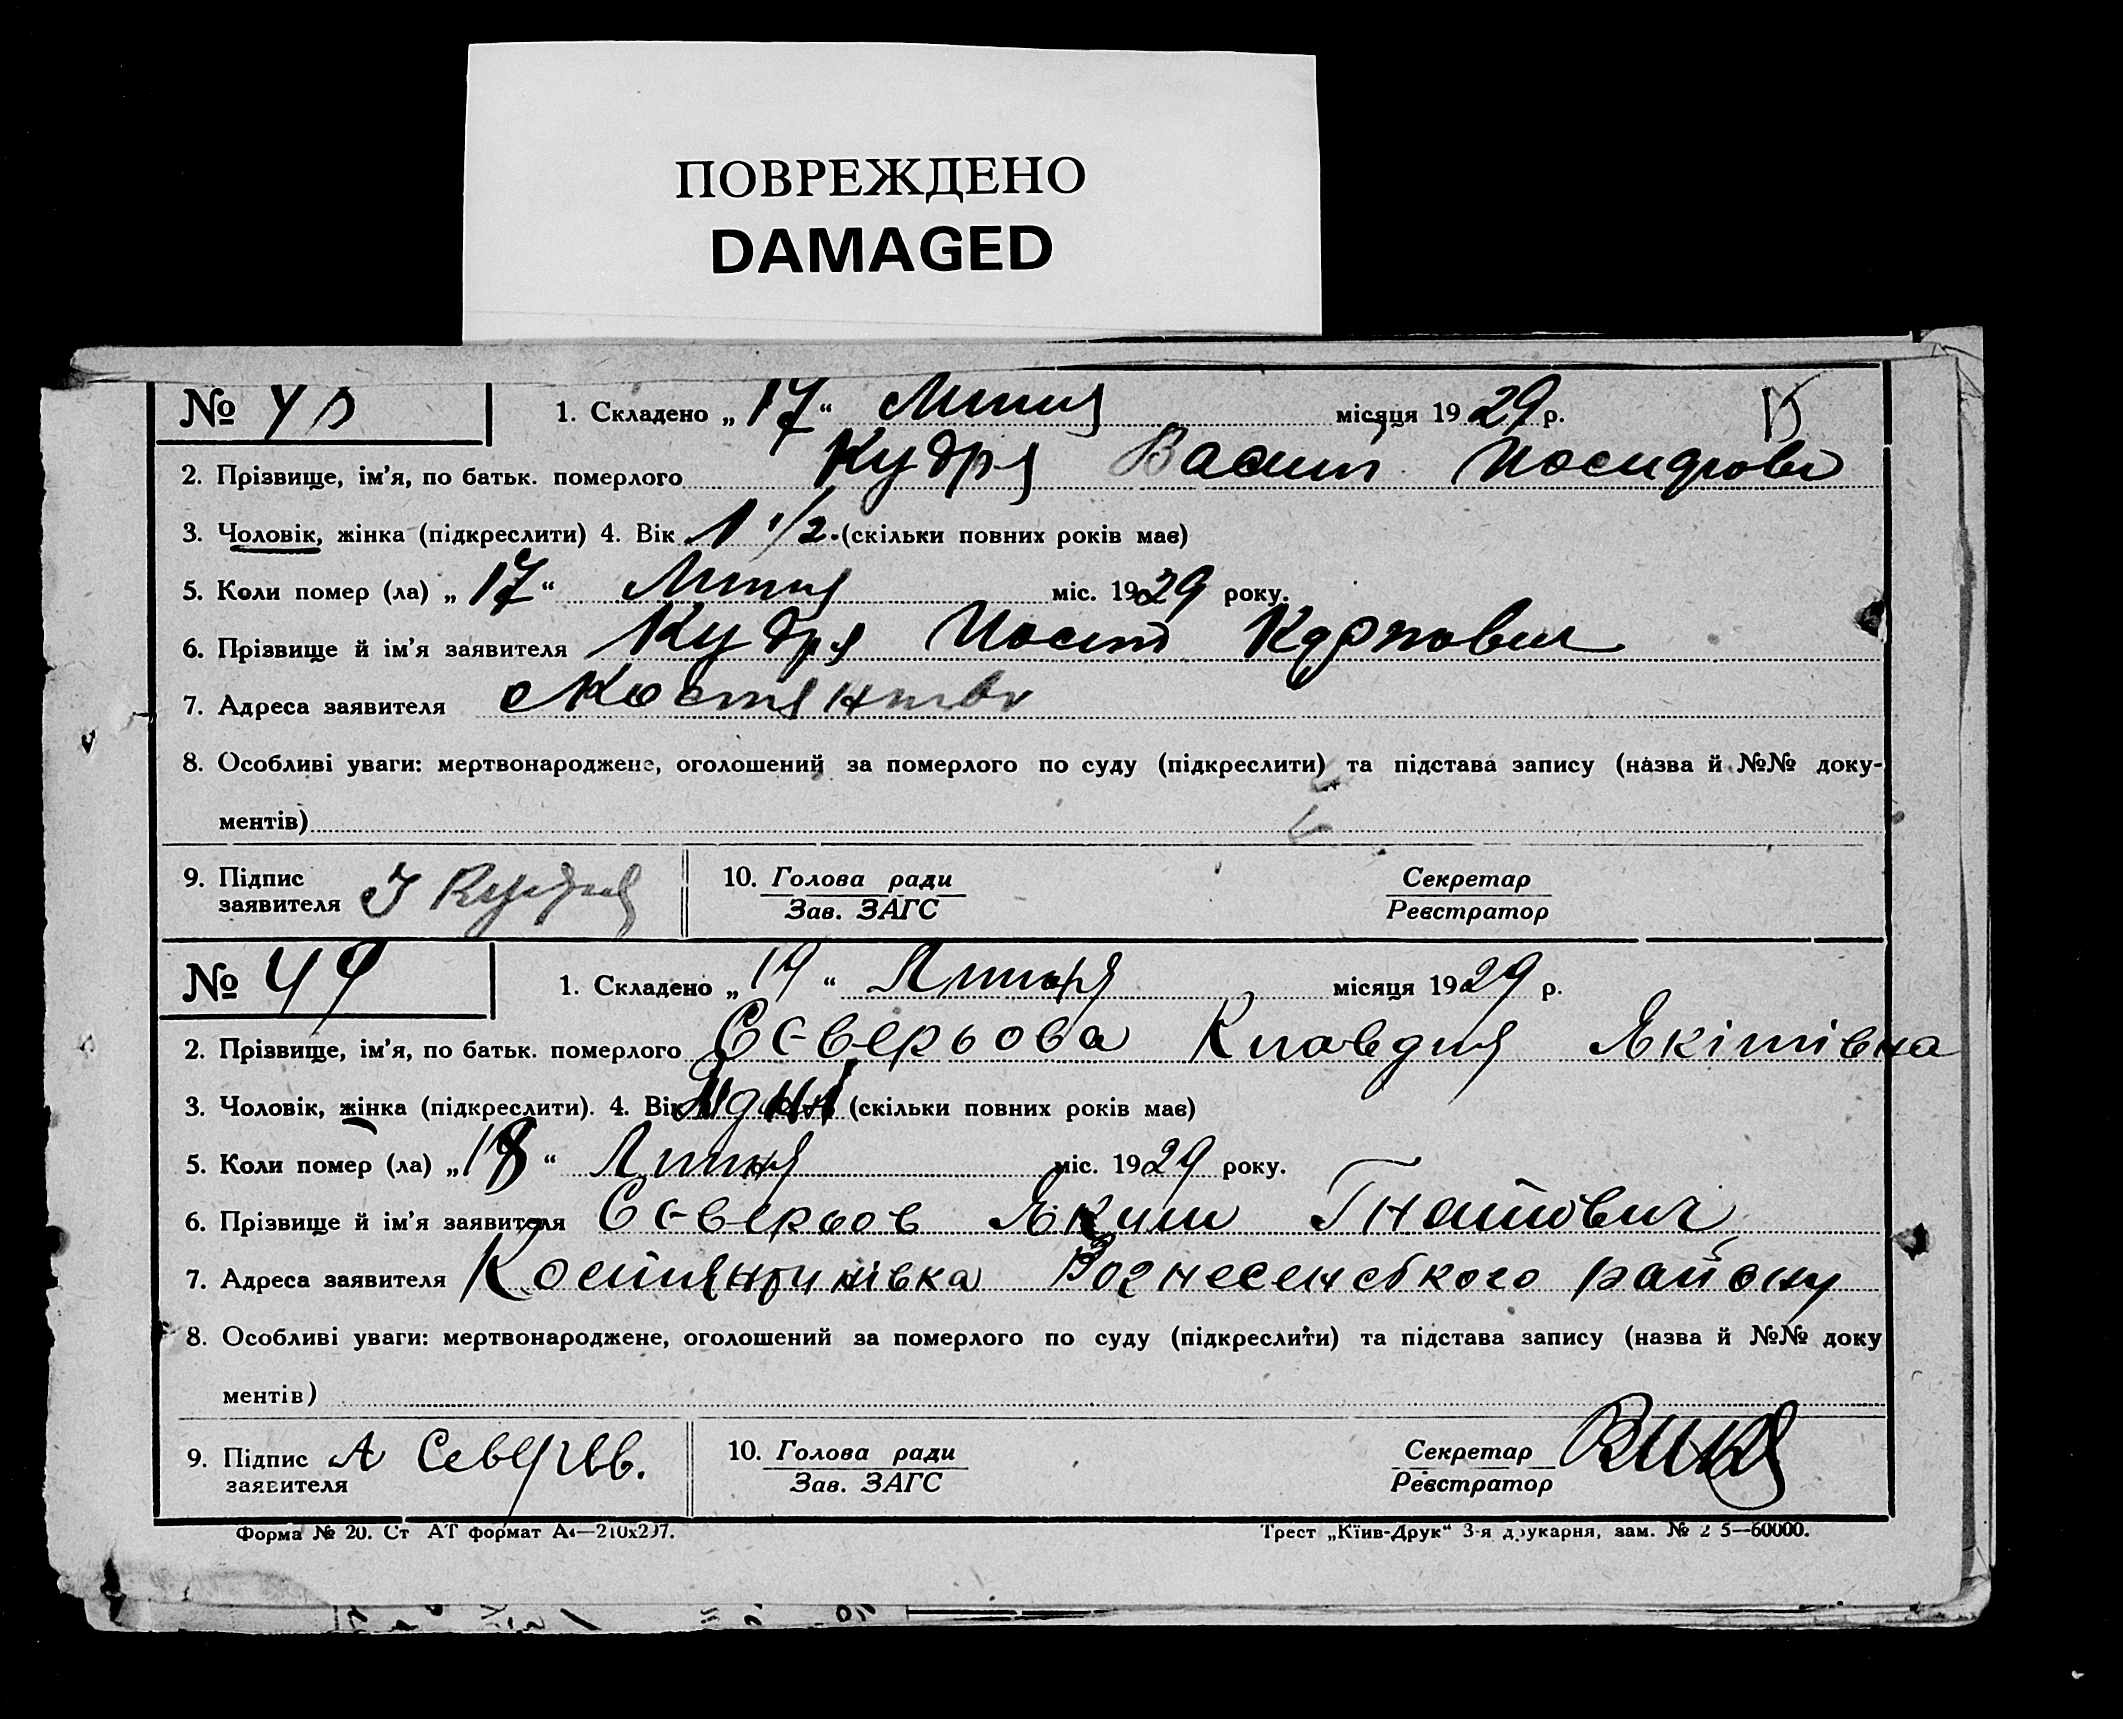 ПОВРЕЖДЕНО
DAMAGED
№ 48
1. Складено „17“ Липня місяця 1929 р.
2. Прізвище, ім'я, по батьк. померлого Кудря Василь Йосипови
3. Чоловік, жінка (підкреслити) 4. Вік 1 1/2 (скільки повних років має)
5. Коли помер (ла) „17“ Липня міс. 1929 року.
6. Прізвище й ім'я заявителя Кудря Йосип Карпович
7. Адреса заявителя с
8. Особливі уваги: мертвонароджене, оголошений за померлого по суду (підкреслити) та підстава запису (назва й №№ доку-
ментів)
9. Підпис заявителя І Кудря
10. Голова ради
Зав. ЗАГС
Секретар
Реєстратор
№ 49
1. Складено „19“ Липня місяця 1929 р.
2. Прізвище, ім'я, по батьк. померлого Сєверьова Клавдия Якімівна
3. Чоловік, жінка (підкреслити). 4. Вік (скільки повних років має)
5. Коли помер (ла) „18“ Липня міс. 1929 року.
6. Прізвище й ім'я заявителя Сєверьов Яким Гнатович
7. Адреса заявителя Костянтинівка Вознесенського району
8. Особливі уваги: мертвонароджене, оголошений за померлого по суду (підкреслити) та підстава запису (назва й №№ доку
ментів)
9. Підпис заявителя А
10. Голова ради
Зав. ЗАГС
Секретар
Реєстратор
Форма № 20. Ст АТ формат А4—210х297.
Трест „Київ-Друк“ 3-я друкарня, зам. № 2 5—60000.